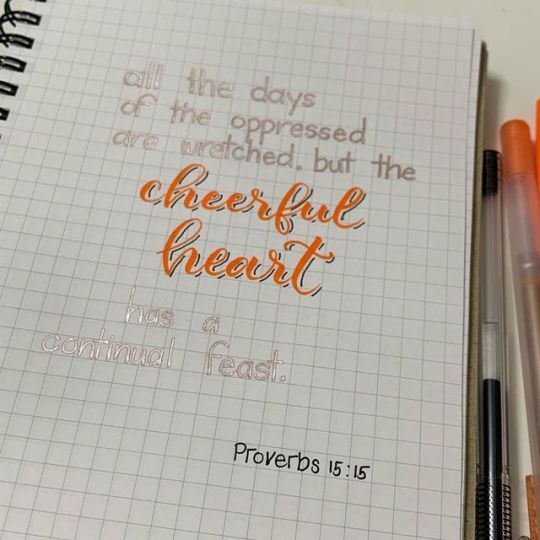 all the days
of the oppressed
are wretched. but the
cheerful
heart
has a
continual feast.
Proverbs 15:15